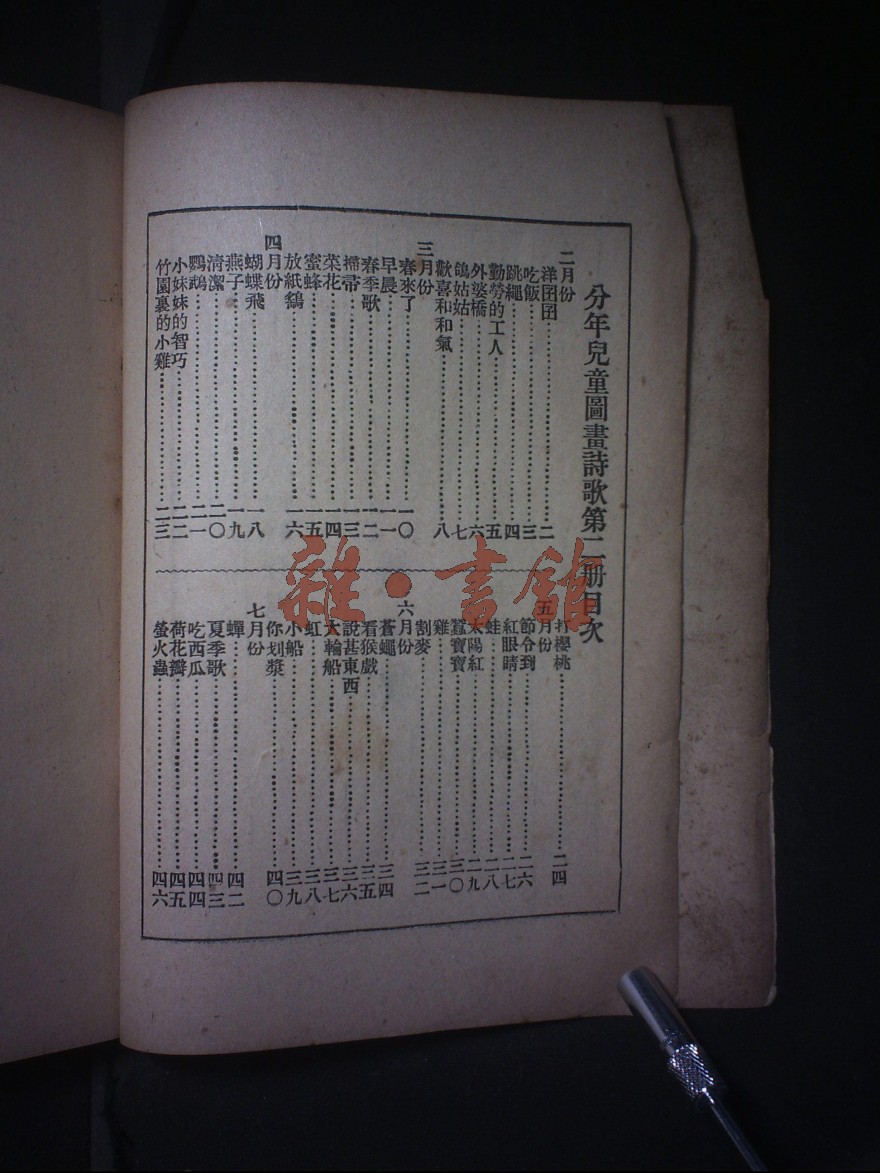 分年兒童圖畫詩歌第二册目次
二月份
洋囝囝……二
吃飯……三
跳繩……四
勤勞的工人……五
外婆橋……六
鴿姑姑……七
歡喜和和氣……八
三月份
春來了……一〇
早晨……一一
春季歌……一二
掃帚……一三
菜花……一四
蜜蜂……一五
放紙鷂……一六
四月份
蝴蝶飛……一八
燕子……一九
清潔……二〇
鸚鵡……二一
小妹妹的智巧……二二
竹園裏的小雞……二三
打櫻桃……二四
五月份
節令到……二六
紅眼睛……二七
蛙……二八
太陽紅……二九
蠶寶寶……三〇
雞……三一
割麥……三二
六月份
蒼蠅……三四
看猴戲……三五
說甚東西……三六
大輪船……三七
虹……三八
小船……三九
你划槳……四〇
七月份
蟬……四二
夏季歌……四三
吃西瓜……四四
荷花瓣……四五
螢火蟲……四六
雜·書館